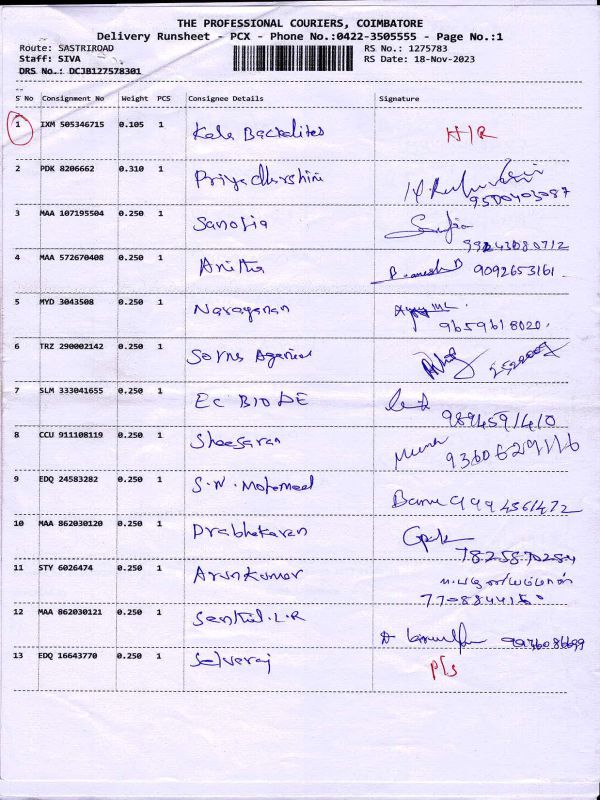 THE PROFESSIONAL COURIERS, COIMBATORE
Delivery Runsheet - PCX - Phone No.:0422-3505555 - Page No.:1
Route: SASTRIROAD RS No.: 1275783
Staff: SIVA RS Date: 18-Nov-2023
DRS No.: DCJB127578301
S No Consignment No Weight PCS Consignee Details Signature
1 IXM 505346715 0.105 1 Kala
2 PDK 8206662 0.310 1 Priyadharshini
9500403087
3 MAA 107195504 0.250 1 Sanofia
4 MAA 572670408 0.250 1 Anitha 9092653161
5 MYD 3043508 0.250 1 Narayanan
9659618020
6 TRZ 290002142 0.250 1
7 SLM 333041655 0.250 1
9894591410
8 CCU 911108119 0.250 1
9360629116
9 EDQ 24583282 0.250 1 S.N. Banu 9994561472
10 MAA 862030120 0.250 1 Prabhakaran
7825870284
11 STY 6026474 0.250 1 Arunkumar
12 MAA 862030121 0.250 1 Senthil.L.R
13 EDQ 16643770 0.250 1 Selveraj P/s